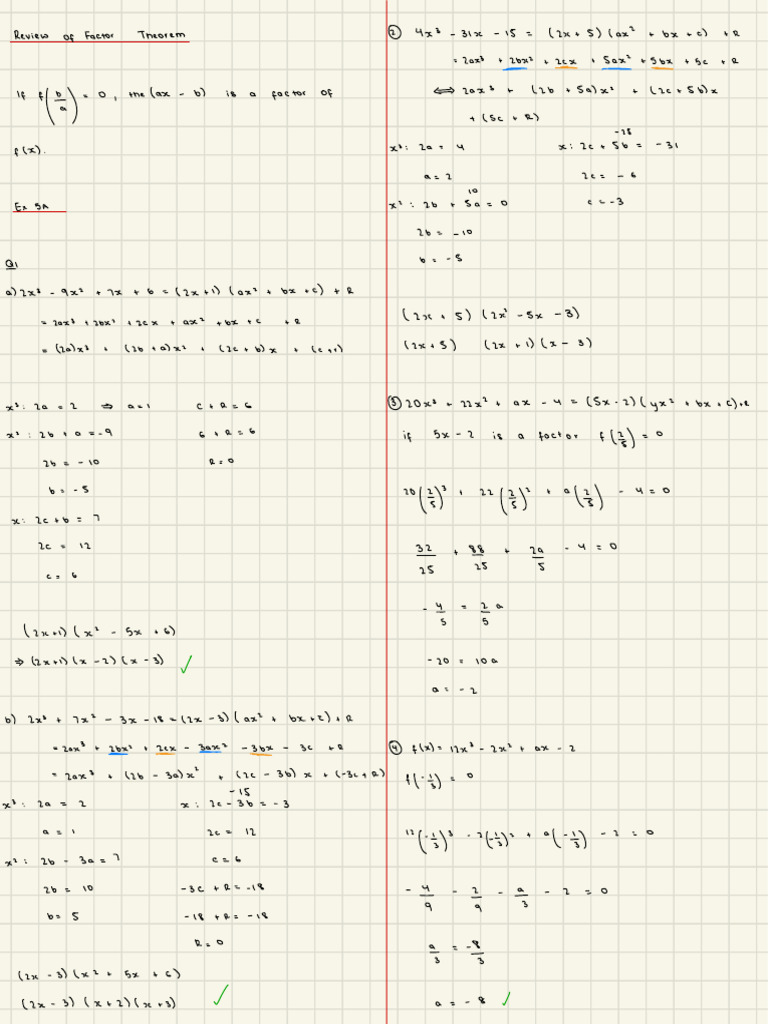 Review of Factor Theorem
If f(b/a) = 0, the (ax - b) is a factor of
f(x).
Ex 5A
Q1
a) 2x³ - 9x² + 7x + 6 = (2x+1)(ax² + bx + c) + R
= 2ax³ + 2bx² + 2cx + ax² + bx + c + R
= (2a)x³ + (2b + a)x² + (2c + b)x + (c+r)
x³: 2a = 2 ⇒ a=1
x²: 2b + a = -9
2b = -10
b = -5
x: 2c + b = 7
2c = 12
c = 6
c + R = 6
6 + R = 6
R = 0
(2x+1)(x² - 5x + 6)
⇒ (2x+1)(x-2)(x-3) ✓
b) 2x³ + 7x² - 3x - 18 = (2x-3)(ax² + bx + c) + R
= 2ax³ + 2bx² + 2cx - 3ax² - 3bx - 3c + R
= 2ax³ + (2b - 3a)x² + (2c - 3b)x + (-3c + R)
x³: 2a = 2
a = 1
x²: 2b - 3a = 7
2b = 10
b = 5
-15
x: 2c - 3b = -3
2c = 12
c = 6
-3c + R = -18
-18 + R = -18
R = 0
(2x - 3)(x² + 5x + 6)
(2x - 3)(x+2)(x+3) ✓
② 4x³ - 31x - 15 = (2x + 5)(ax² + bx + c) + R
= 2ax³ + 2bx² + 2cx + 5ax² + 5bx + 5c + R
⟺ 2ax³ + (2b + 5a)x² + (2c + 5b)x
+ (5c + R)
x³: 2a = 4
a = 2
10
x²: 2b + 5a = 0
2b = -10
b = -5
-25
x: 2c + 5b = -31
2c = -6
c = -3
(2x + 5)(2x² - 5x - 3)
(2x+5) (2x+1)(x-3)
③ 20x³ + 22x² + ax - 4 = (5x-2)(yx² + bx + c)+R
if 5x-2 is a factor f(2/5) = 0
20(2/5)³ + 22(2/5)² + a(2/5) - 4 = 0
32/25 + 88/25 + 2a/5 - 4 = 0
- 4/5 = 2/5 a
-20 = 10a
a = -2
④ f(x) = 12x³ - 2x² + ax - 2
f(-1/3) = 0
12(-1/3)³ - 2(-1/3)² + a(-1/3) - 2 = 0
- 4/9 - 2/9 - a/3 - 2 = 0
a/3 = -8/3
a = -8 ✓